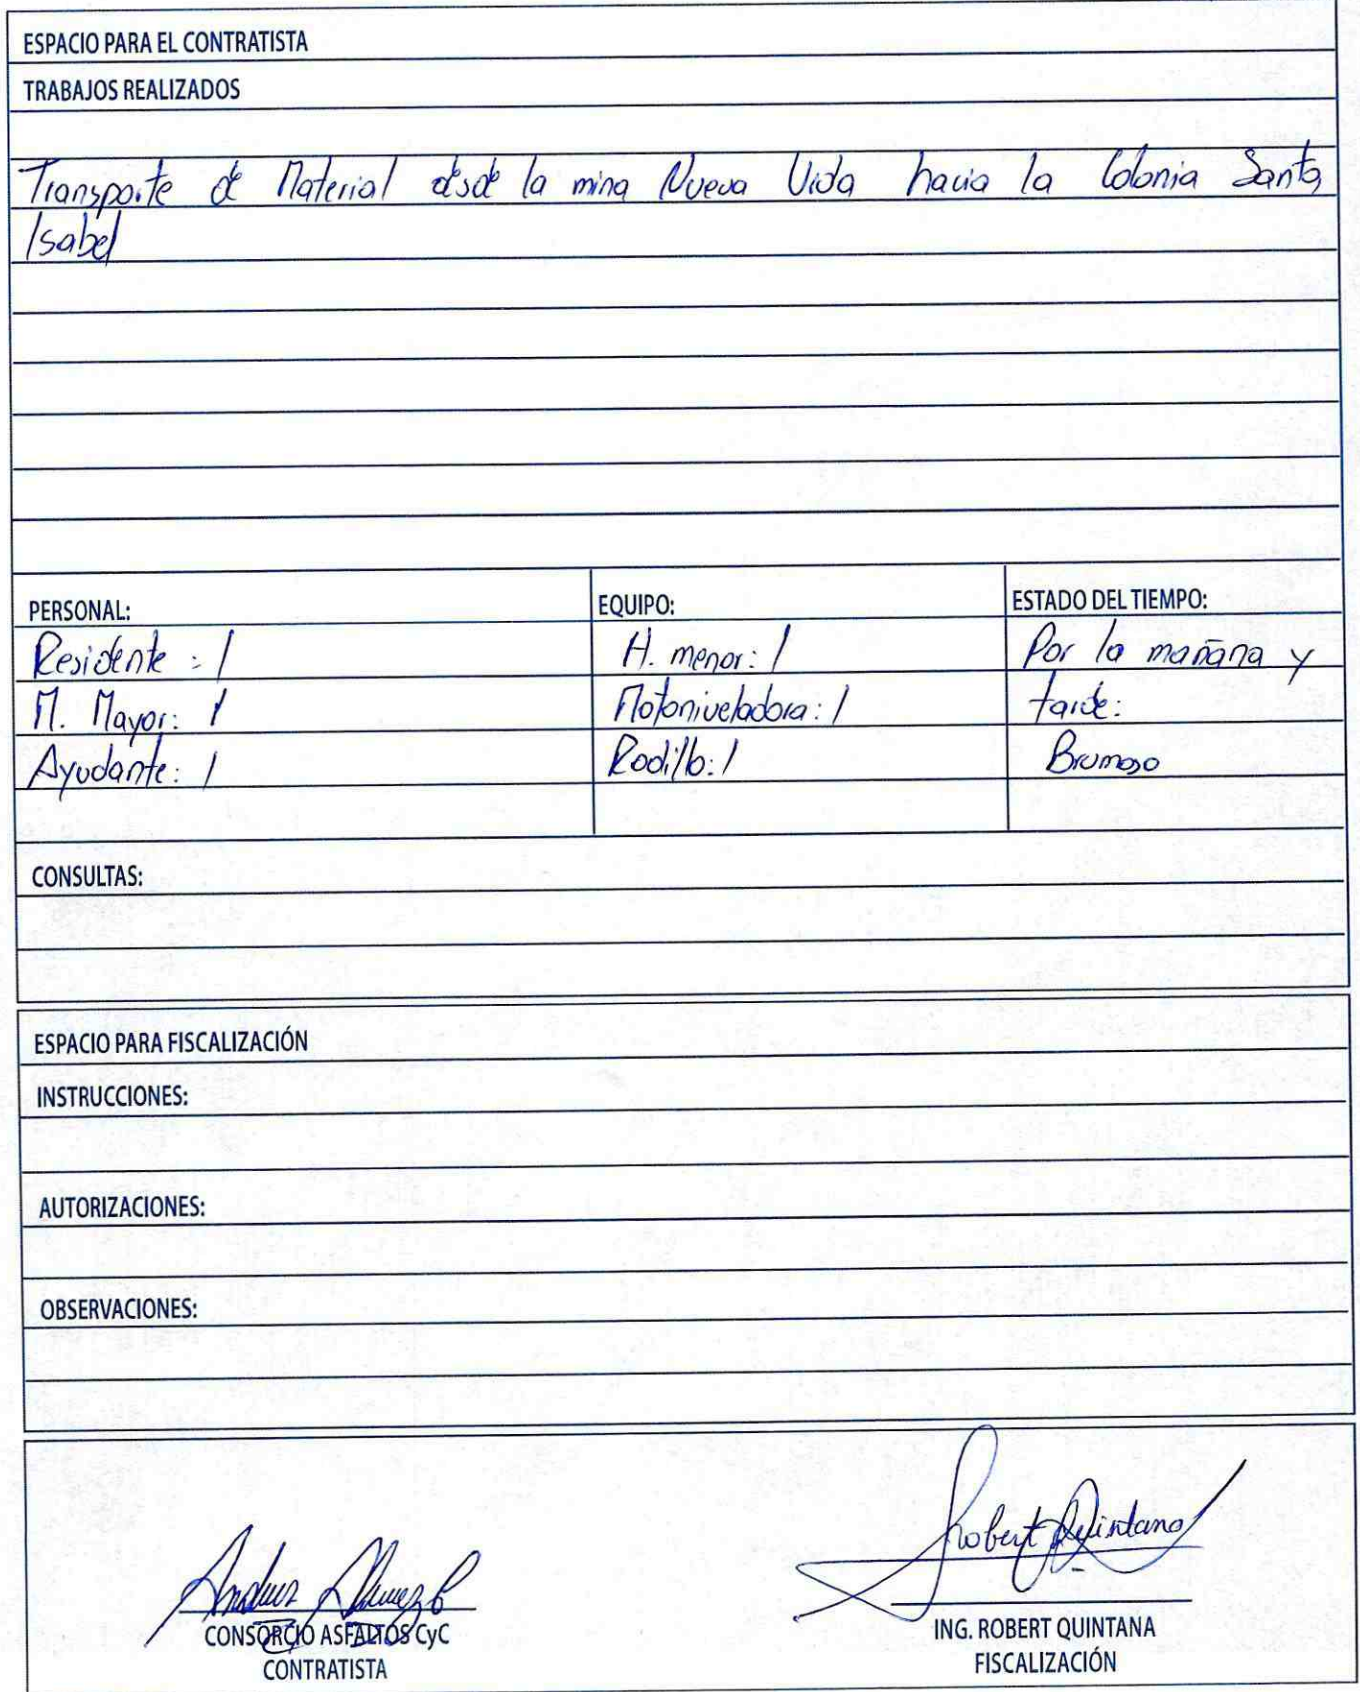 ESPACIO PARA EL CONTRATISTA
TRABAJOS REALIZADOS
Transporte de Material desde la mina Nueva Vida hacia la Colonia Santa
Isabel
PERSONAL:
Residente : 1
M. Mayor: 1
Ayudante: 1
EQUIPO:
H. menor: 1
Motoniveladora: 1
Rodillo: 1
ESTADO DEL TIEMPO:
Por la mañana y
tarde:
Brumoso
CONSULTAS:
ESPACIO PARA FISCALIZACIÓN
INSTRUCCIONES:
AUTORIZACIONES:
OBSERVACIONES:
CONSORCIO ASFALTOS CyC
CONTRATISTA
Robert Quintana
ING. ROBERT QUINTANA
FISCALIZACIÓN